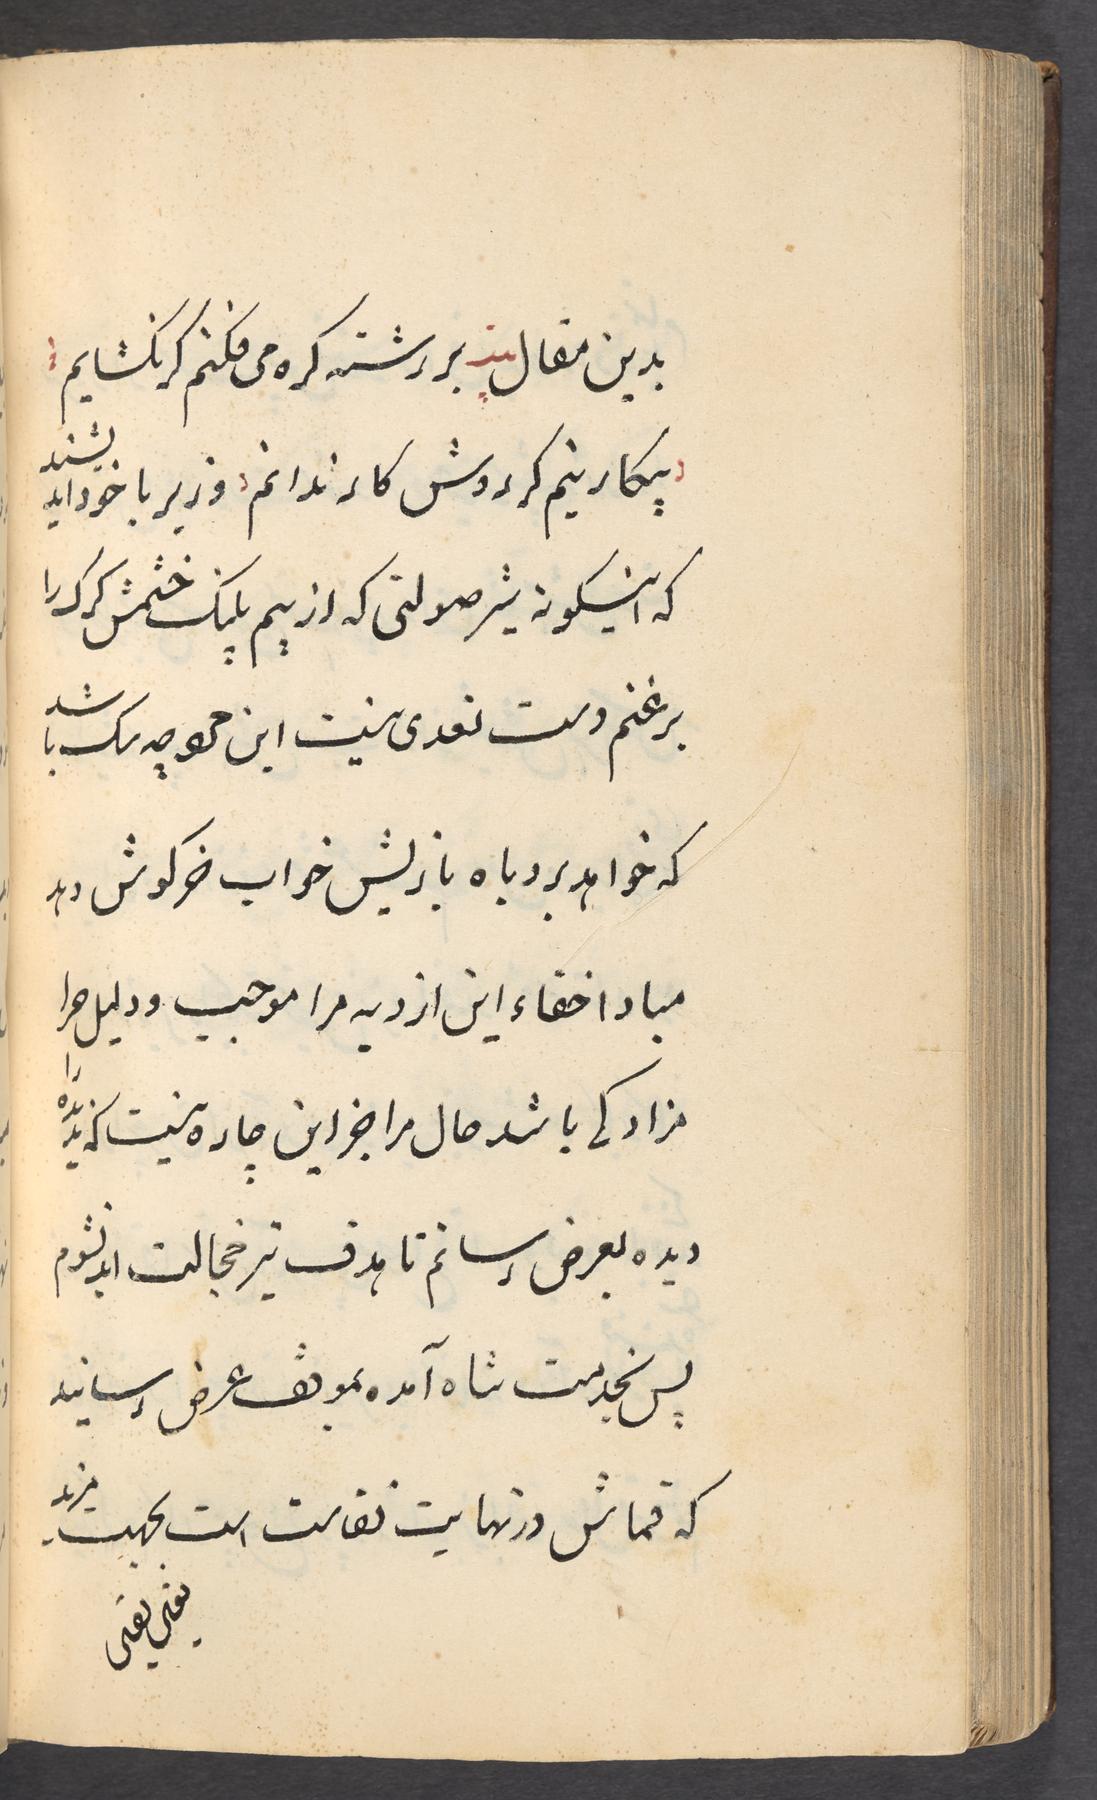 بدین مقال بیت بر رشته کره می فکنم کر نکشایم
بیکار نیم کر روش کار ندانم وزیر با خود اندیشید
که اینکونه شیر صولتی که از بیم پلنک خشمش کرک را
بر غنم دست تعدی نیست این چه سک باشد
که خواهد بروباه بازیش خواب خرکوش دهد
مبادا خفاء این از دیه مرا موجب و دلیل مرا
مزاد کی باشد حال مرا جز این چاره نیست که ندیده را
دیده بعرض رسانم تا هدف تیر خجالت ابد نشوم
پس بخدمت شاه آمده بموقف عرض رسانید
که قماش در نهایت نفاست است بجهت مزید
یعنی یعنی